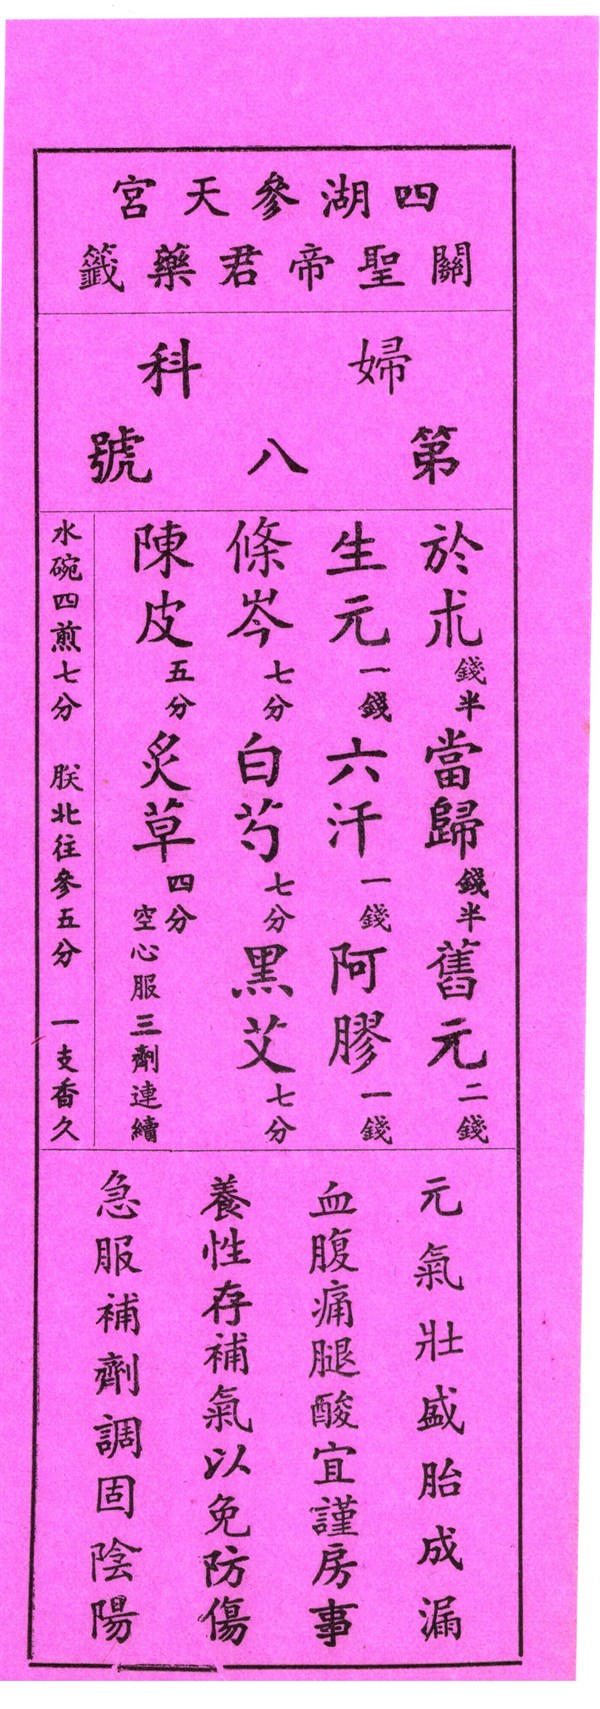 四湖參天宮
關聖帝君藥籤
婦科
第八號
於朮錢半 當歸錢半 舊元二錢
生元一錢 六汗一錢 阿膠一錢
條岑七分 白芍七分 黑艾七分
陳皮五分 炙草四分 空心服三劑連續
水碗四煎七分 朕北往參五分 一支香久
元氣壯盛胎成漏
血腹痛腿酸宜謹房事
養性存補氣以免防傷
急服補劑調固陰陽